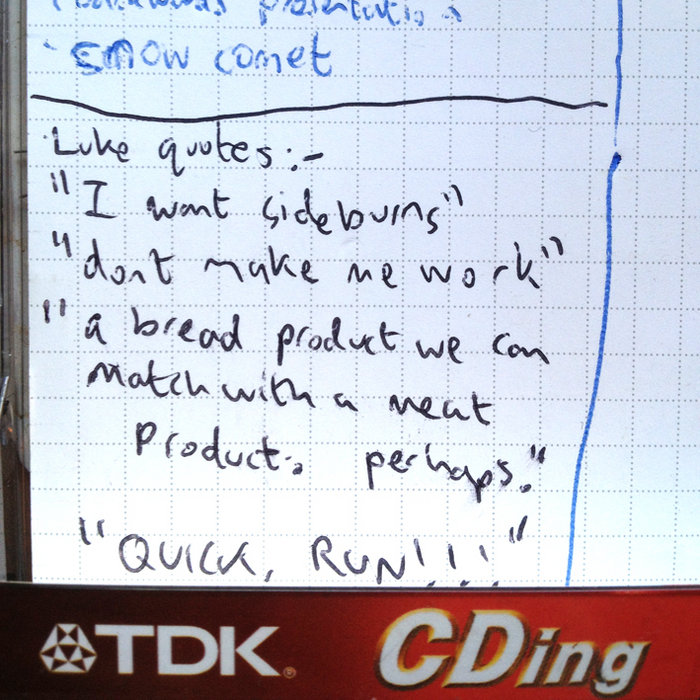 backwards presentation
smow comet
Luke quotes:-
"I want sideburns"
"dont make me work"
"a bread product we can
match with a meat
Product. perhaps."
"QUICK, RUN!!!"
TDK®
CDing